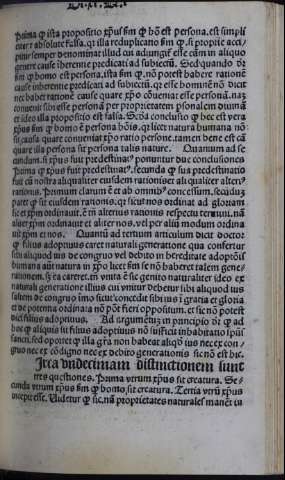 Prima ꝙ ista propositio xp̄us s̄m ꝙ hō est persona. est simpli
citer ⁊ absolute falsa. qꝛ illa reduplicatio s̄m ꝙ. si proprie acci
pitur semper denominat illud cui adiungit̄ esse cām in aliquo
genere cause inherentie predicati ad subiectū. Sed quando dr̄
s̄m ꝙ homo est persona. ista s̄m ꝙ. nō potest habere rationē
cause inherentie predicati ad subiectū. qꝛ esse hominē nō dicit
nec habet rationē cause quare xp̄o conueniat esse personā. naʒ
conuenit sibi esse personā per proprietatem ꝑsonalem diuinā
et ideo illa propositio est falsa. Scda conclusio ꝙ hec est vera
xp̄us s̄m ꝙ homo ē persona hoīs. qꝛ licet natura humana nō
sit causa quare conueniat xp̄o ratio persone. tamen bene est cā
quare illa persona sit persona talis nature. Quantum ad se
cundum. si xp̄us fuit predestinat⁹ ponuntur due conclusiones
Prima ꝙ xp̄us fuit predestinat⁹. secunda ꝙ sua predestinatio
fuit cū nostra aliqualiter eiusdem rationis et aliqualiter alteri⁹
rationis. Primum clarum ē et ab omnib⁹ concessum. secūduʒ
patet ꝙ sit eiusdem rationis. qꝛ sicut nos ordinat ad gloriam
sic et xp̄m ordinauit. ē tn̄ alterius rationis respectu termini. nā
aliter xp̄m ordinauit et aliter nos. vel per aliū modum ordina
uit xp̄m et nos. Quantū ad tertium articulum dicit doctor
ꝙ filius adoptiuus caret naturali generatione qua confertur
sibi aliquod ius de congruo vel debito in hereditate adoptātis
humana aūt natura in xp̄o licet s̄m se nō haberet talem gene/
rationem. sʒ ea careret. tn̄ vnita ē sic genito naturaliter ideo ex
naturali generatione illius cui vnitur debetur sibi aliquod ius
saltem de congruo imo sicut ꝯcedit̄ sibi ius ī gratia et gloria
et de potentia ordinata nō pōt fieri oppositum. et sic nō potest
dici filius adoptiuus. Ad argumētuʒ in principio dr̄ ꝙ ad
hoc ꝙ aliquis sit filius adoptiuus nō sufficit inhabitatio spūs
sancti. sed oportet ꝙ illa gr̄a non habeat aliqđ ius nec ex con/
gruo nec ex cōdigno nec ex debito generationis sic nō est hic.
Irca vndecimam distinctionem sunt
tres questiones. Prima vtrum xp̄us sit creatura. Se/
cunda vtrum xp̄us s̄m ꝙ homo sit creatura. Tertia vtrū xp̄us
inceperit esse. Uidetur ꝙ sic. nā proprietates naturales manēt in